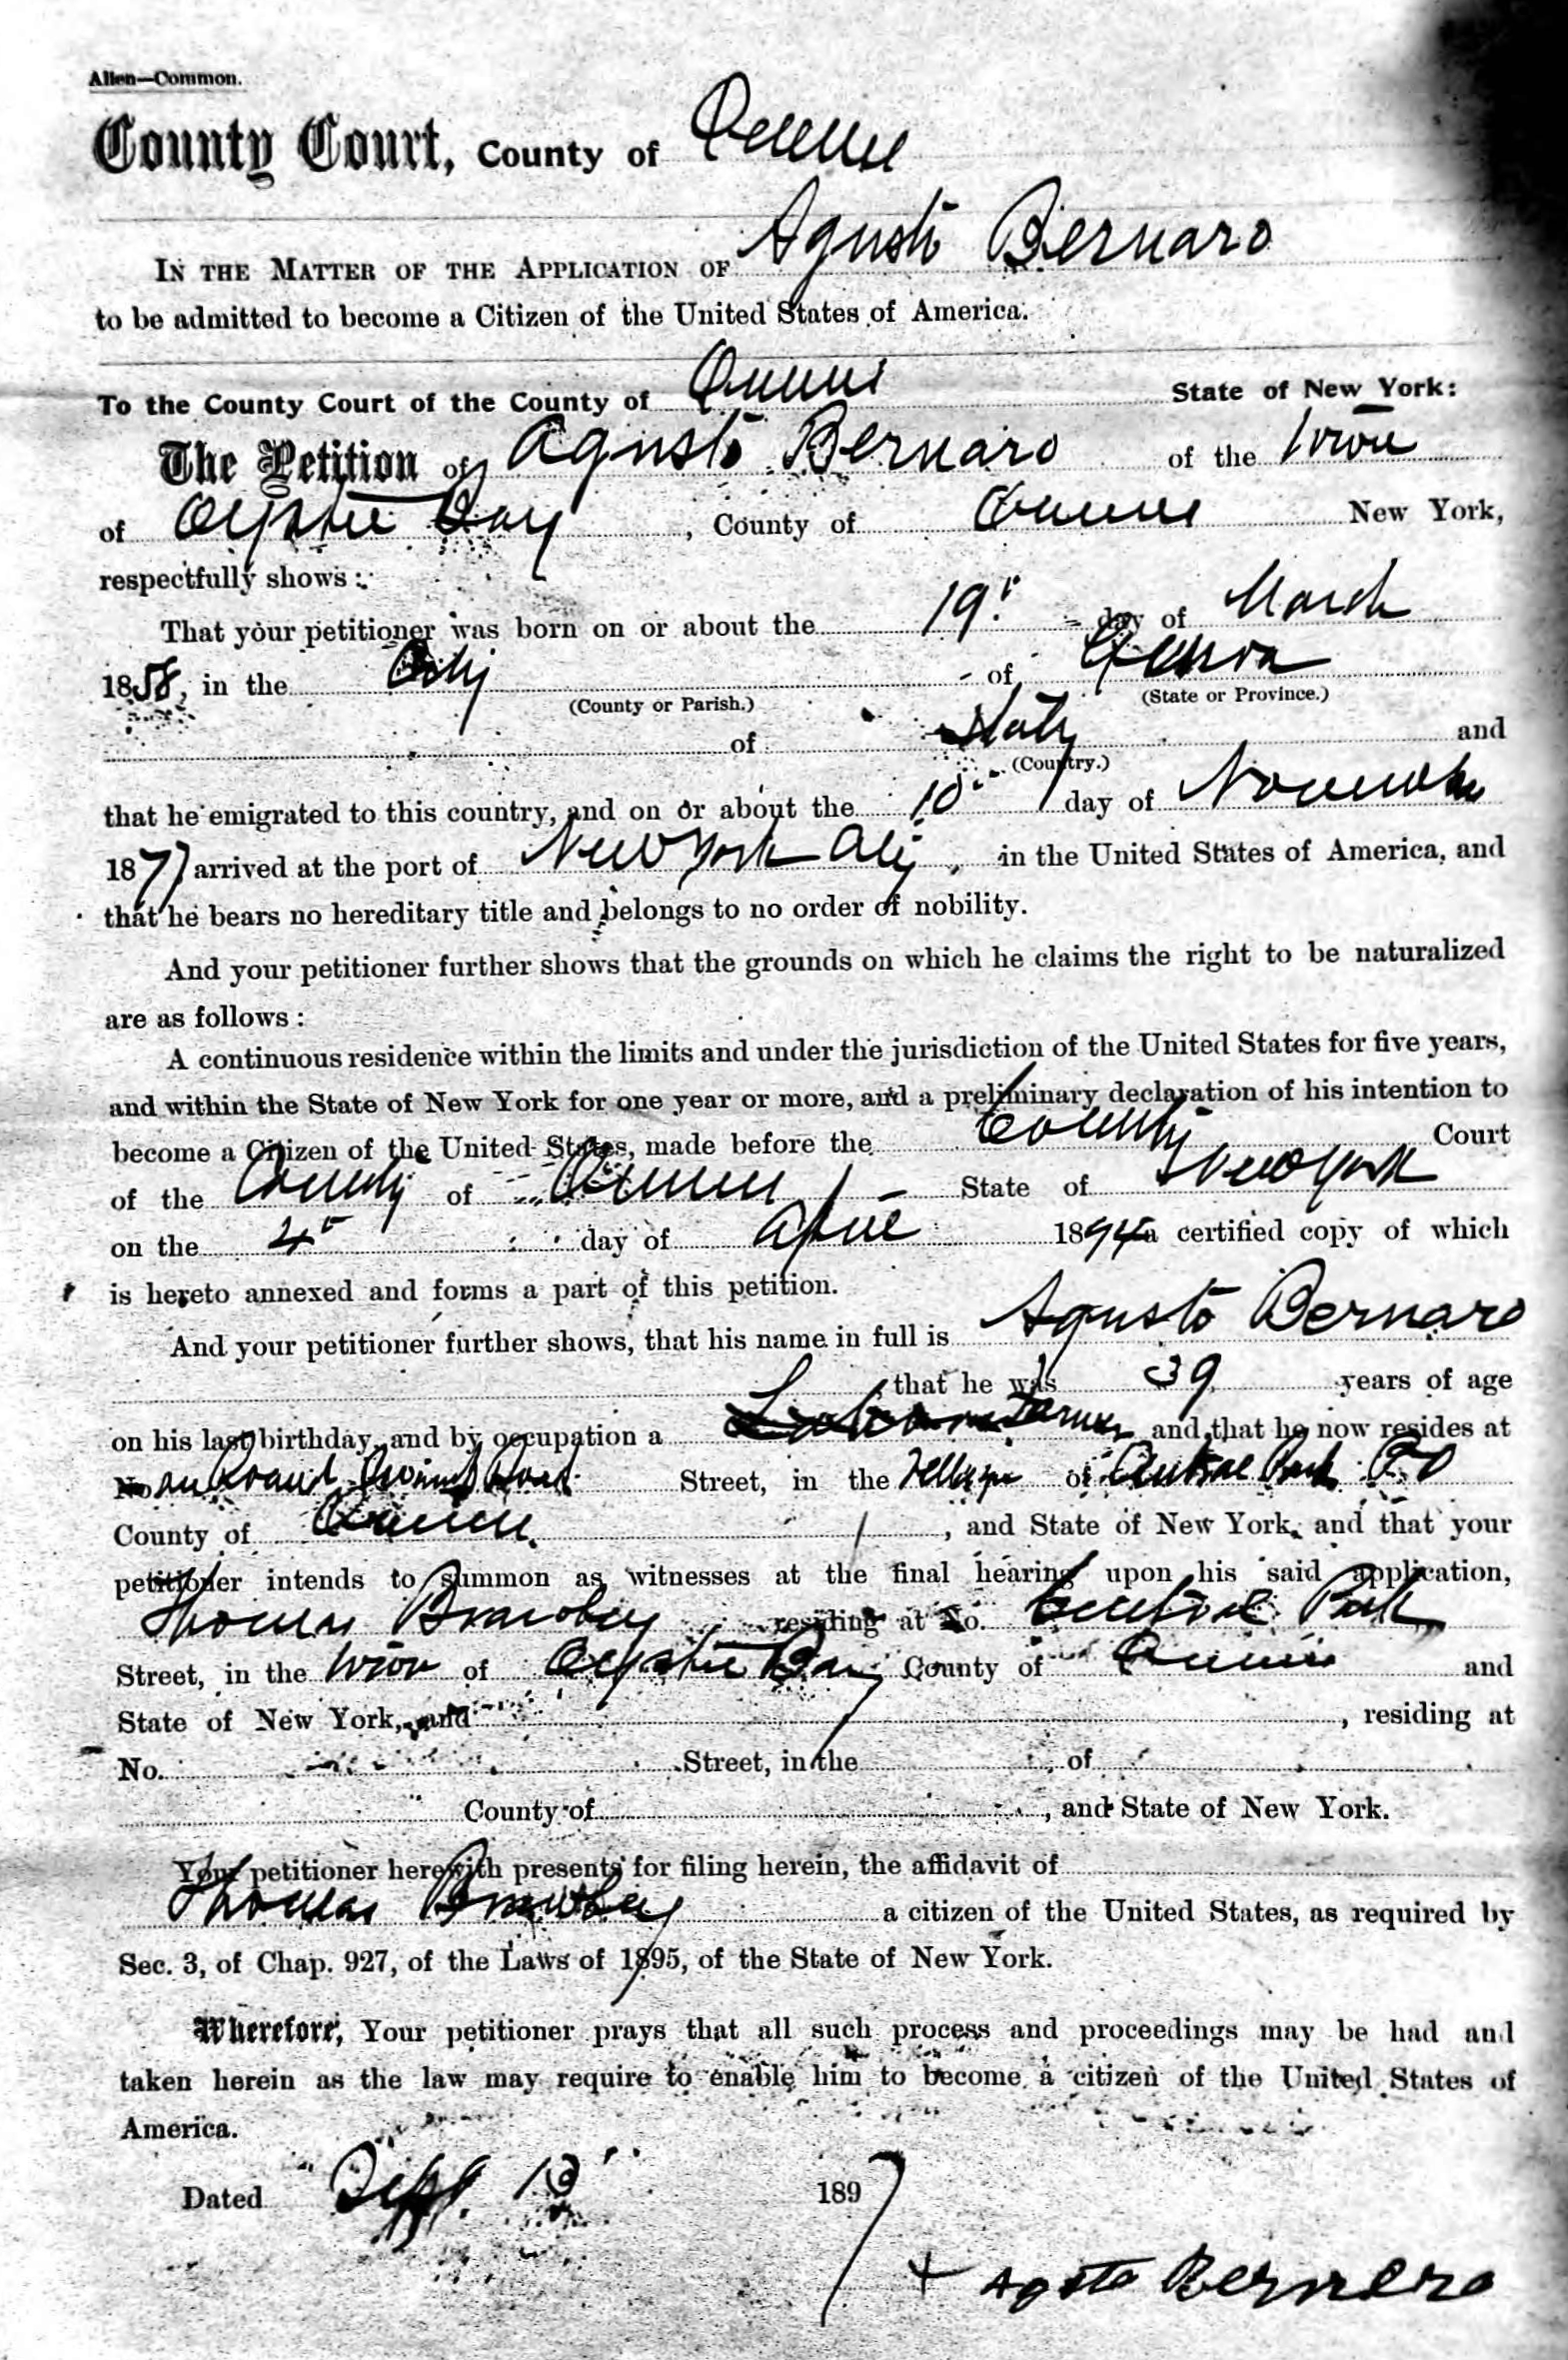 Alien—Common.
County Court, County of Queens
Agusto Bernaro
IN THE MATTER OF THE APPLICATION OF
to be admitted to become a Citizen of the United States of America.
To the County Court of the County of Queens State of New York:
The Petition of Agusto Bernaro of the Town
of Oyster Bay, County of Queens New York,
respectfully shows:
That your petitioner was born on or about the 19" day of March
1858, in the City of Genoa
(County or Parish.) (State or Province.)
of Italy and
(Country.)
that he emigrated to this country, and on or about the 10" day of November
1877 arrived at the port of New York City, in the United States of America, and
that he bears no hereditary title and belongs to no order of nobility.
And your petitioner further shows that the grounds on which he claims the right to be naturalized
are as follows:
A continuous residence within the limits and under the jurisdiction of the United States for five years,
and within the State of New York for one year or more, and a preliminary declaration of his intention to
become a Citizen of the United States, made before the County Court
of the County of Queens State of New York
on the 4" day of April 1894 a certified copy of which
is hereto annexed and forms a part of this petition.
And your petitioner further shows, that his name in full is Agusto Bernaro
, that he was 39 years of age
on his last birthday, and by occupation a Farmer and that he now resides at
No on Round Swamp Road Street, in the Village of Central Park P.O
County of Queens, and State of New York, and that your
petitioner intends to summon as witnesses at the final hearing upon his said application,
Thomas residing at No. Central Park
Street, in the Town of Oyster Bay County of Queens and
State of New York, and , residing at
No. Street, in the of
County of , and State of New York.
Your petitioner herewith presents for filing herein, the affidavit of
Thomas a citizen of the United States, as required by
Sec. 3, of Chap. 927, of the Laws of 1895, of the State of New York.
Wherefore, Your petitioner prays that all such process and proceedings may be had and
taken herein as the law may require to enable him to become a citizen of the United States of
America.
Dated Sept. 1897
+ Agosto Bernero